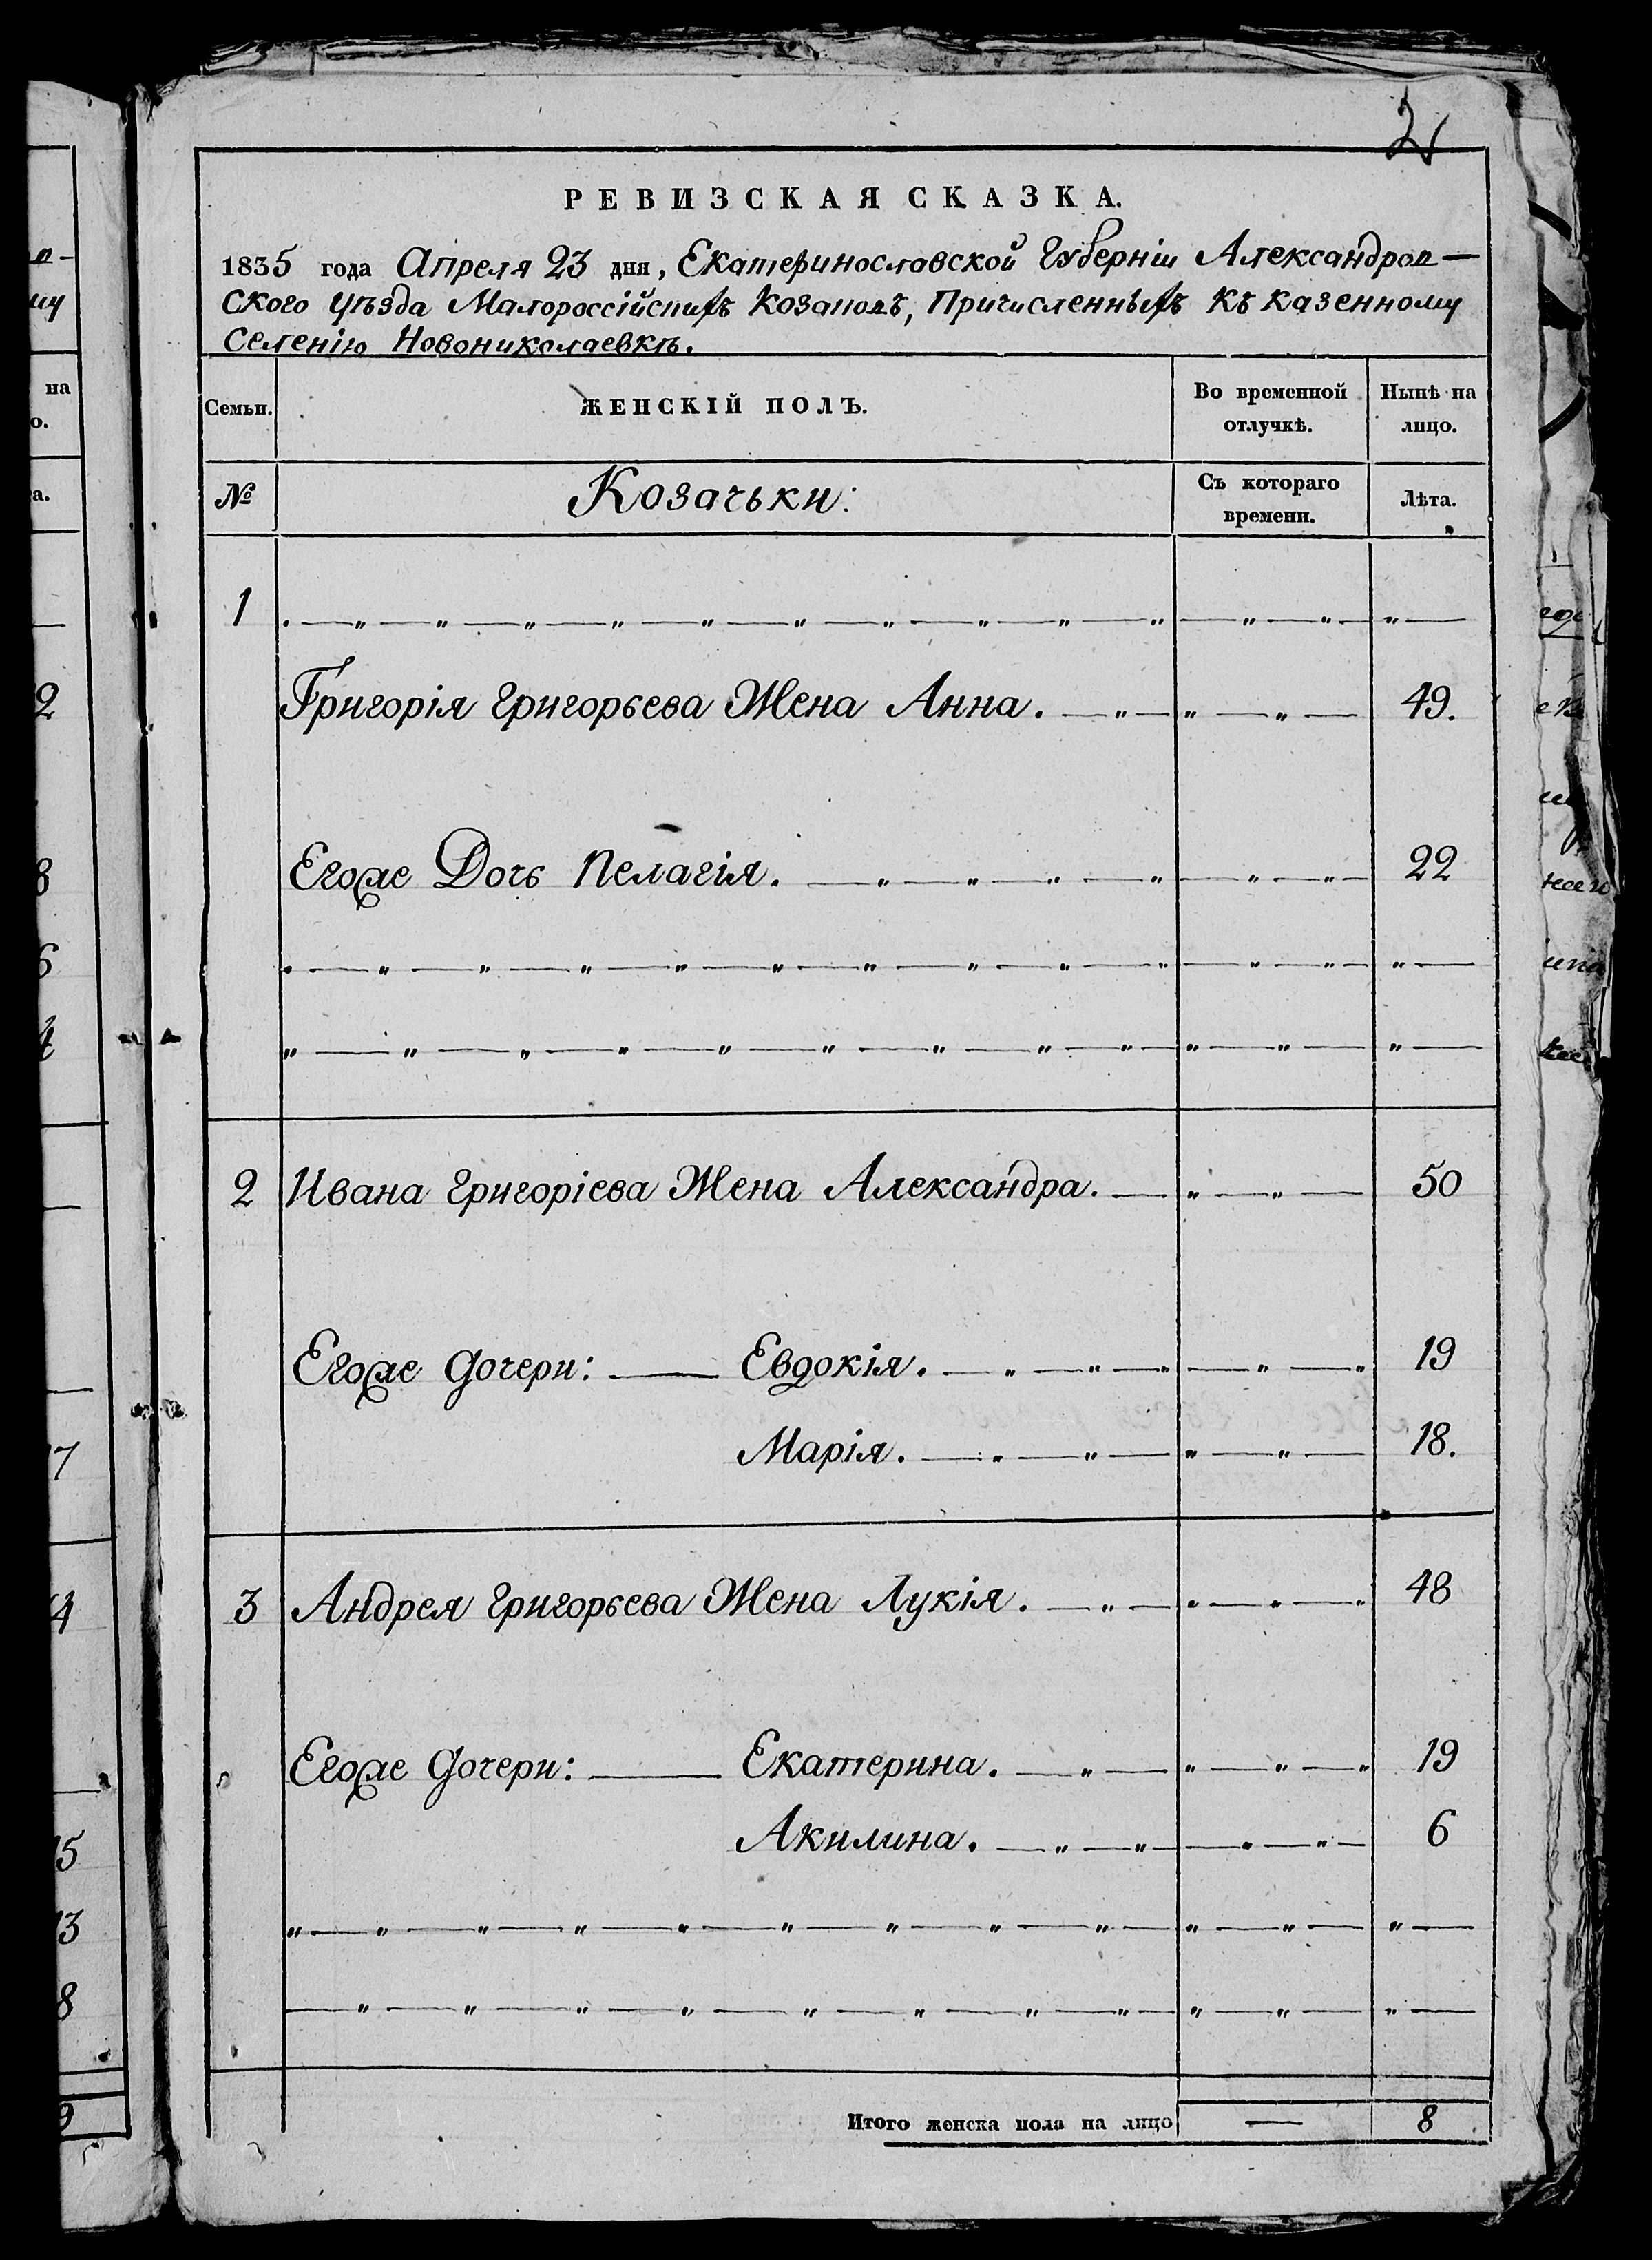 2
РЕВИЗСКАЯ СКАЗКА.
1835 года Апреля 23 дня, Екатеринославской Губерніи Александров—
ского уѣзда Малороссійскихъ Козаковъ, Причисленныхъ къ казенному
Селенію Новониколаевкѣ.
Семьи. ЖЕНСКІЙ ПОЛЪ. Во временной отлучкѣ. Нынѣ на лицо.
№ Козачьки: Съ котораго времени. Лѣта.
1 „ — „ — „
Григорія Григорьева Жена Анна. — „ — „ — „ — 49.
Егоже Дочь Пелагія. — „ — „ — „ 22
„ — „ — „
„ — „ — „
2 Ивана Григоріева Жена Александра. — „ — „ — 50
Егоже дочери: — Евдокія. — „ — „ — „ 19
Марія. — „ — „ — „ 18.
3 Андрея Григорьева Жена Лукія. — „ — „ — „ 48
Егоже дочери: — Екатерина. — „ — „ — „ 19
Акилина. — „ — „ — „ 6
„ — „ — „
— „ — „ — „
Итого женска пола на лицо — 8